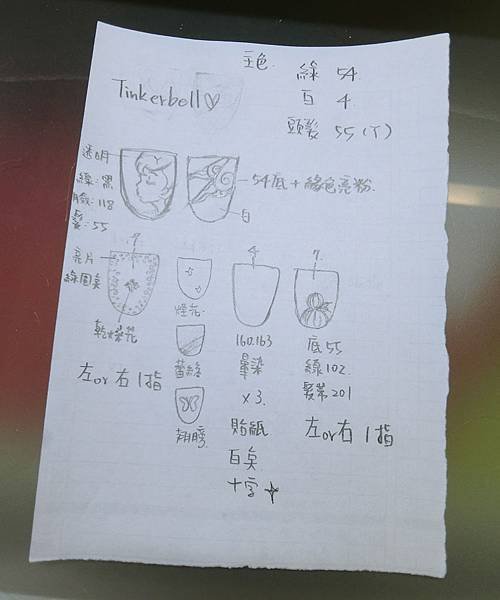 主色. 綠 54
Tinkerbell♡
白 4
頭髮 55(T)
透明
線:黑
臉:118
髮:55
54底+綠色亮粉.
白
7
亮片
綠圓臭
乾燥花
左or右1指
煙花.
蕾絲
翅膀
4
160.163
暈染
x3.
貼紙
白臭
十字
7.
底55
線102
髮帶201
左or右1指